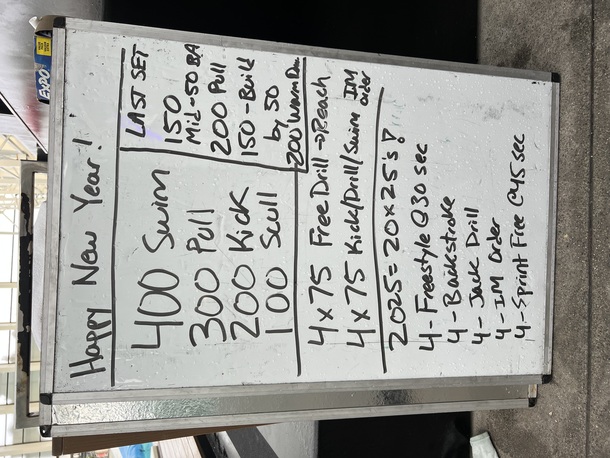 EXPO
Happy New Year!
400 Swim
300 Pull
200 Kick
100 Scull
LAST SET
150
Mid-50 BA
200 Pull
150-Build
by 50
200 Warm
4x75 Free Drill →Reach
4x75 Kick/Drill/Swim IM
order
2025=20x25's!
4-Freestyle @30 sec
4-Backstroke
4-Jack Drill
4-IM Order
4-Sprint Free @45 sec